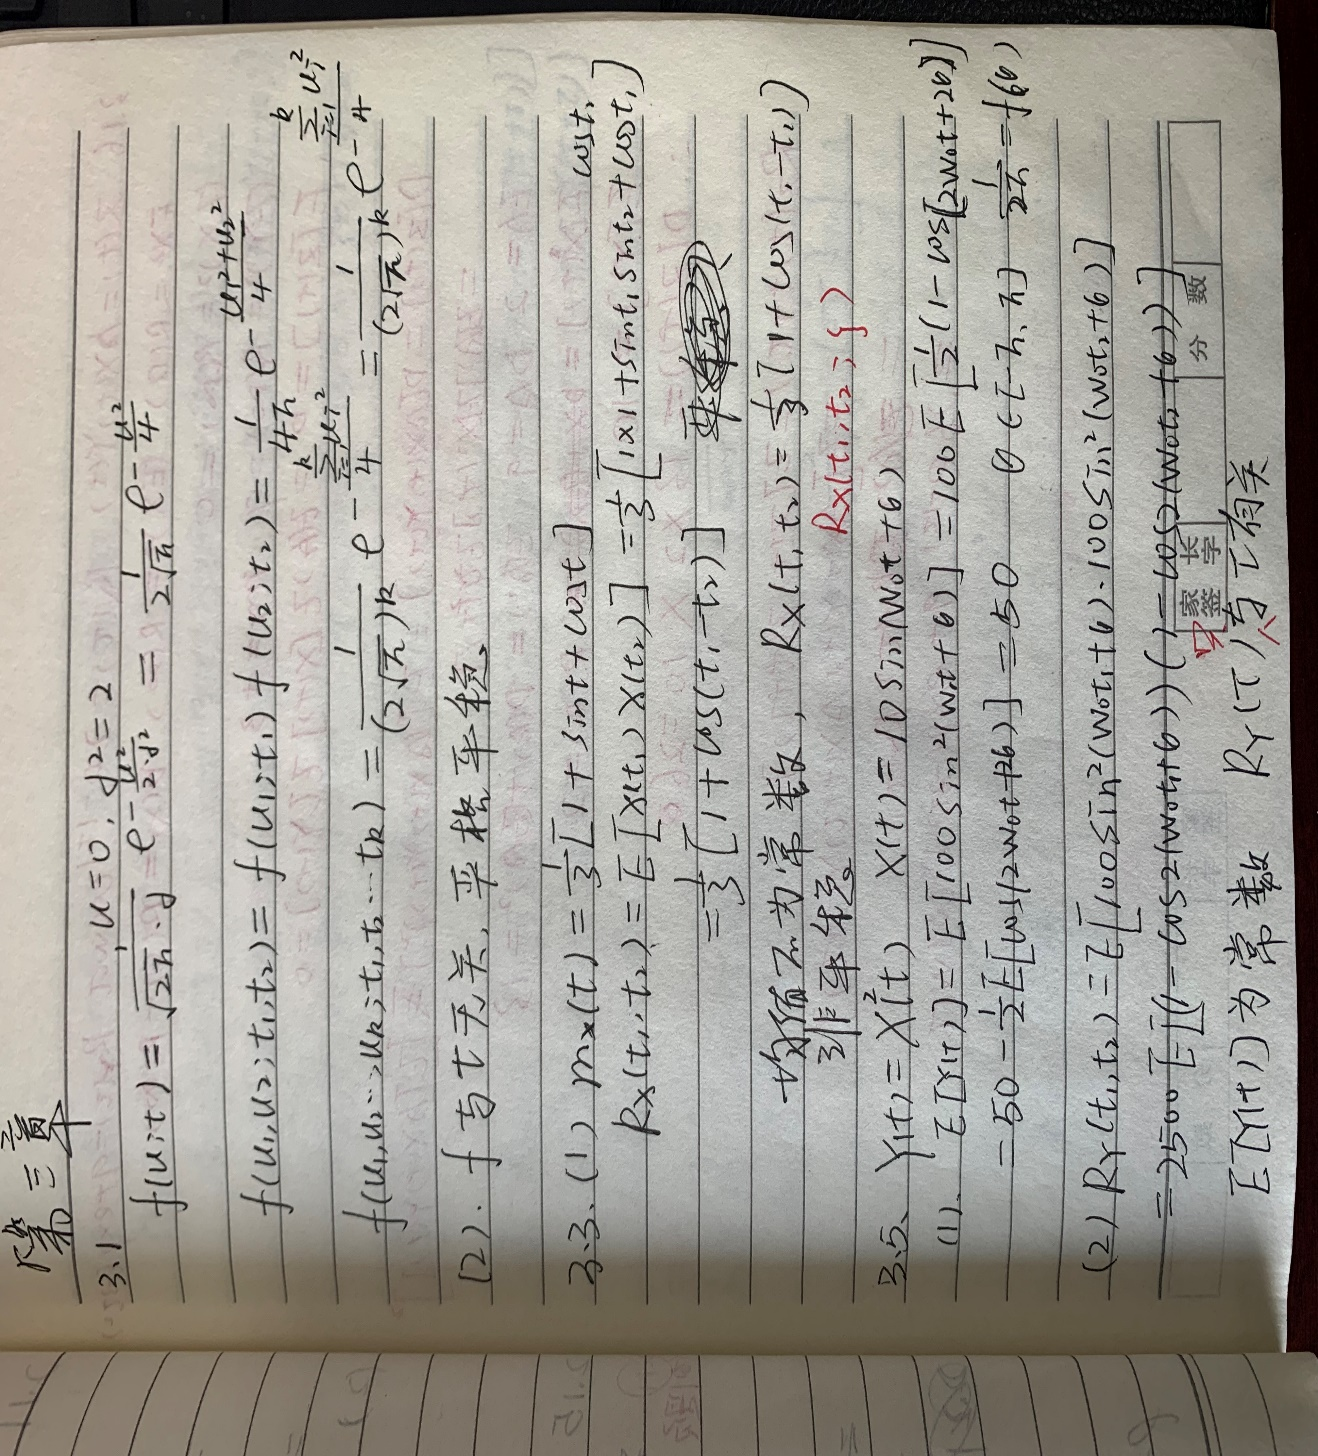 第三章
3.1 u=0, σ²=2
f(u;t) = 1/(√2π·σ) e^(-u²/2·σ²) = 1/(2√π) e^(-u²/4)
f(u₁,u₂;t₁,t₂) = f(u₁;t₁) f(u₂;t₂) = 1/4π e^(-(u₁²+u₂²)/4)
f(u₁,u₂…,u_k;t₁,t₂…t_k) = 1/(2√π)^k e^(-Σ_{i=1}^k u_i²/4) = 1/(2√π)^k e^(-Σ_{i=1}^k u_i²/4)
(2). f与t无关,严格平稳。
3.3. (1) m_X(t) = 1/3[1+sint+cost]
R_X(t₁,t₂) = E[X(t₁)X(t₂)] = 1/3[1×1+sint₁sint₂+cost₁cost₁]
= 1/3[1+cos(t₁-t₂)]
均值不为常数, R_X(t₁,t₂) = 1/3[1+cos(t₁-t₁)]
非平稳。 R_X(t₁,t₂;ξ)
3.5、 Y(t)=X²(t) X(t)=10sin(w₀t+θ)
(1). E[Y(t)] = E[100sin²(w₀t+θ)] = 100E[1/2(1-cos[2w₀t+2θ)]]
= 50-1/2E[cos(2w₀t+2θ)] = 50 θ∈[-π,π] 1/2π=f(θ)
(2) R_Y(t₁,t₂) = E[100sin²(w₀t₁+θ)·100sin²(w₀t₂+θ)]
= 2500E[(1-cos2(w₀t₁+θ))(1-cos2(w₀t₂+θ))]
E[Y(t)]为常数 R_Y(τ)与τ有关
家长签字 分数